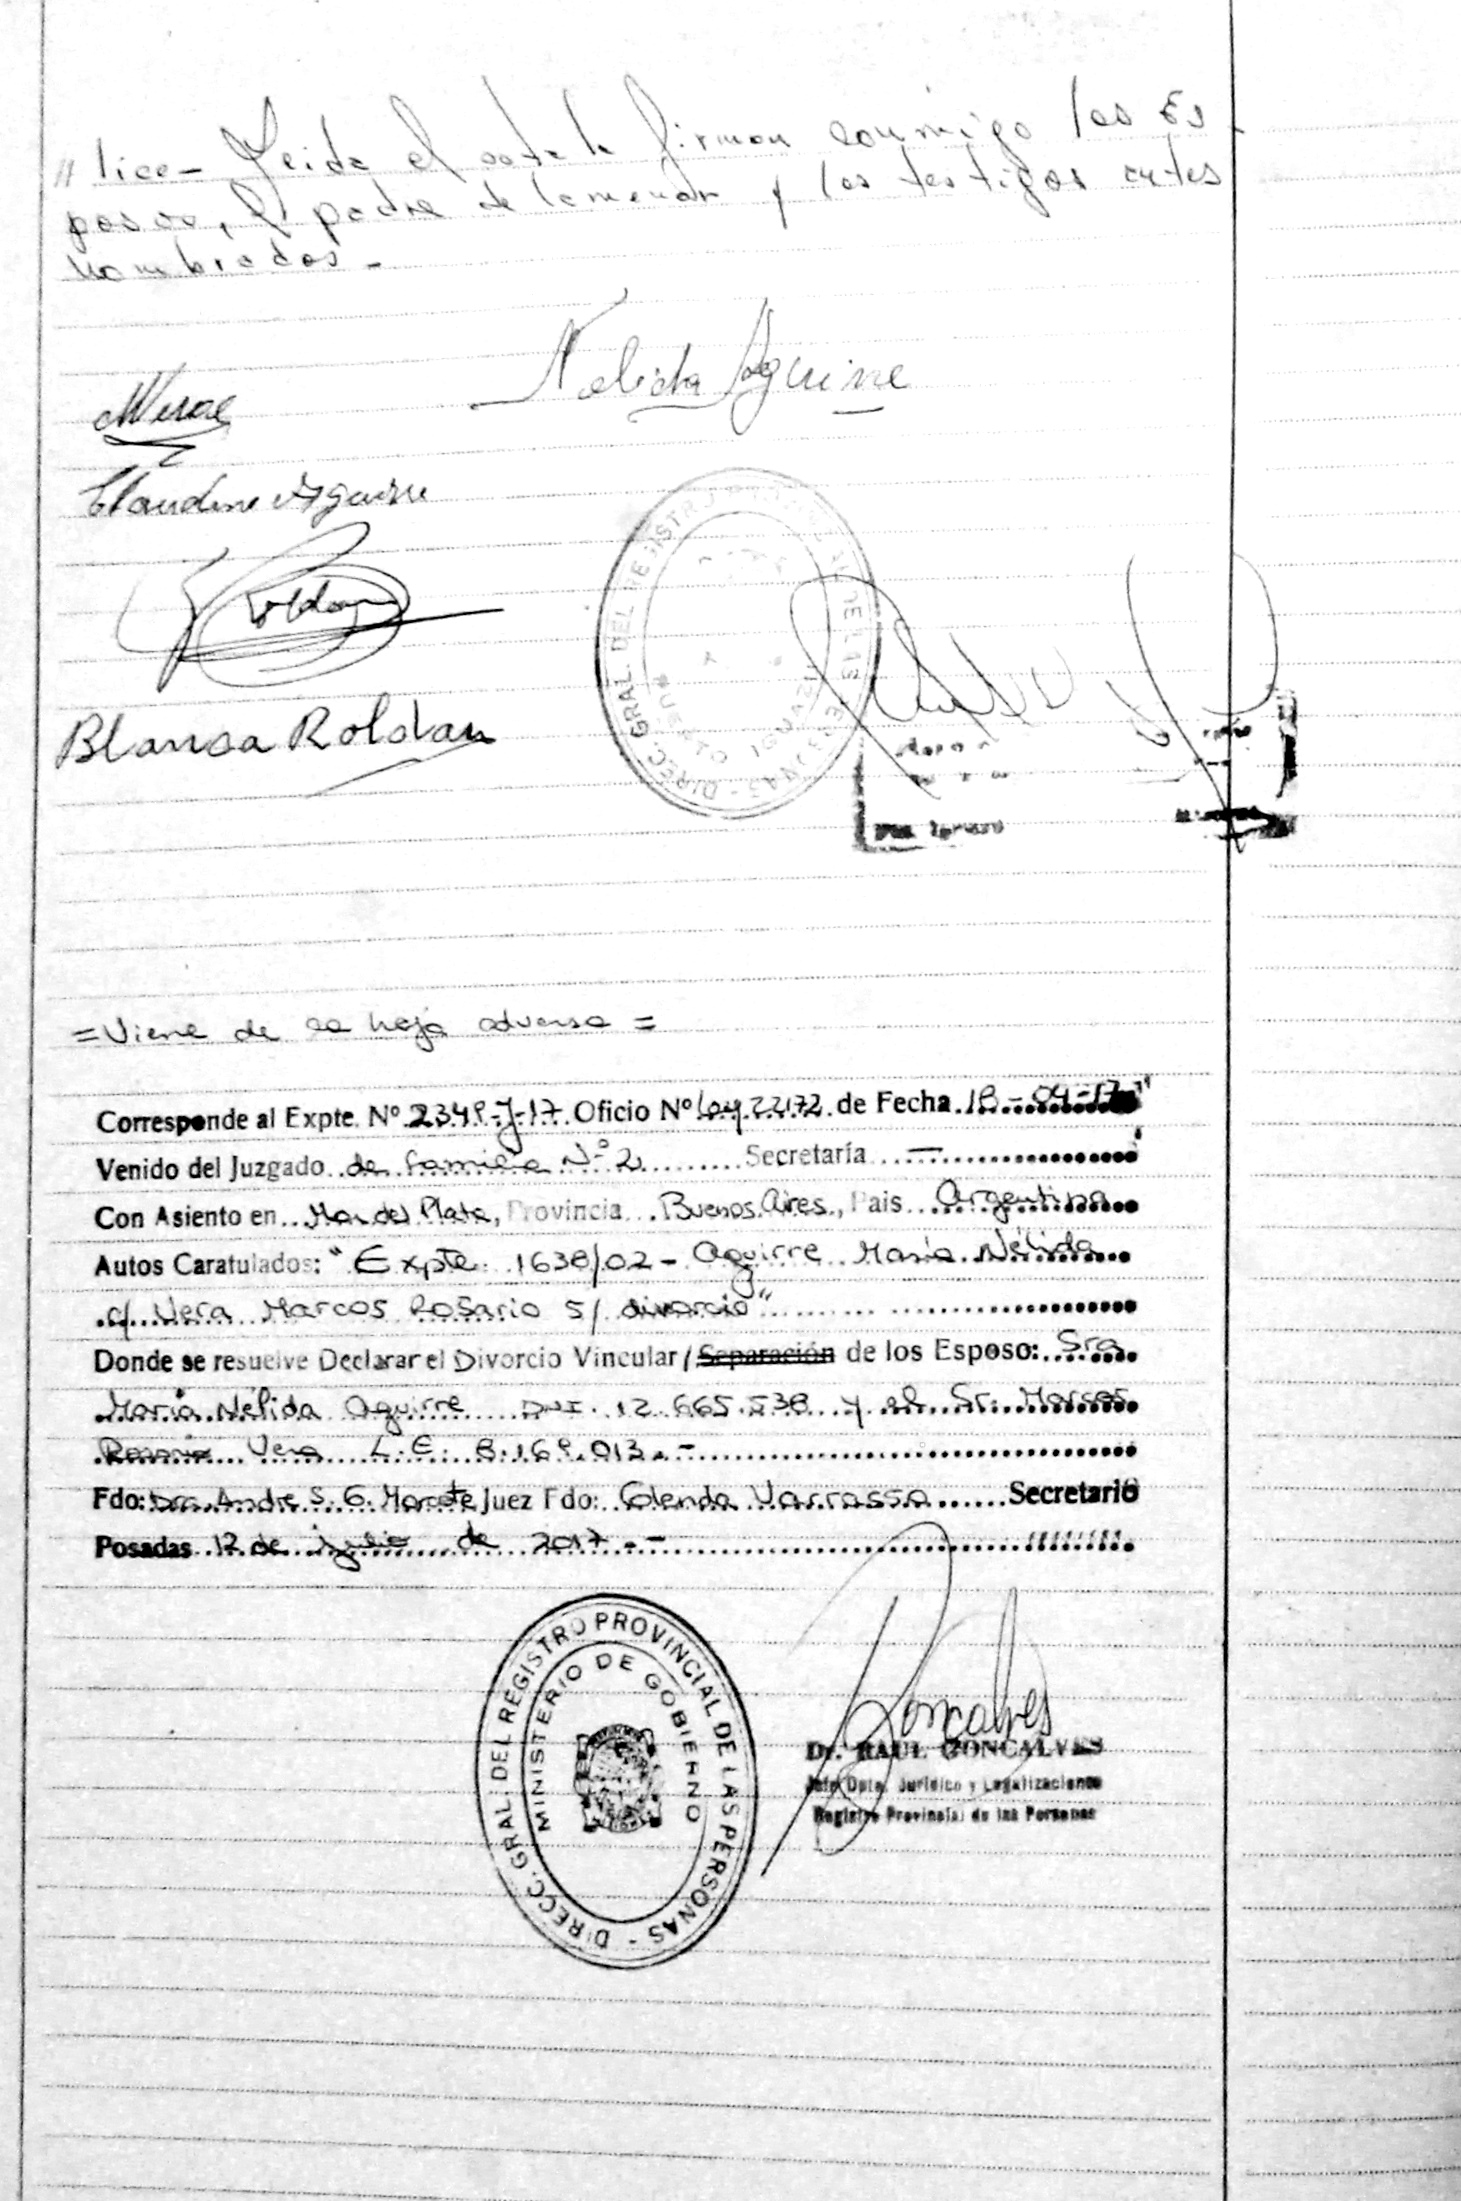 // lice- Leida el acta la firman conmigo los Es-
posos, el padre de la menor y los testigos antes
nombrados.-
Nelida Aguirre
MVera
Claudino Aguirre
Roldan
Blanca Roldan
DIREC. GRAL. DEL REGISTRO PROVINCIAL DE LAS PERSONAS -
=Viene de la hoja adversa=
Corresponde al Expte. Nº 2349-J-17 Oficio Nº Ley 22172 de Fecha 18-04-17"
Venido del Juzgado de familia Nº 2 Secretaría —
Con Asiento en Mar del Plata, Provincia Buenos Aires, Pais Argentina
Autos Caratulados: "Expte. 1638/02- Aguirre María Nélida
c/ Vera Marcos Rosario s/ divorcio"
Donde se resuelve Declarar el Divorcio Vincular / Separación de los Esposo: Sra
María Nélida Aguirre DNI. 12.665.538 y el Sr. Marcos
Rosario Vera L.E. 8.169.013.-
Fdo: Dra. Andre S. G. Juez Fdo: Glenda Varrasso Secretario
Posadas 12 de julio de 2017.-
DIRECC. GRAL. DEL REGISTRO PROVINCIAL DE LAS PERSONAS -
MINISTERIO DE GOBIERNO
Goncalves
Dr. RAUL GONCALVES
Jefe Dpto. Jurídico y Legalizaciones
Registro Provincial de las Personas